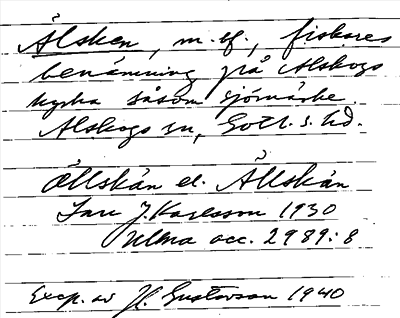 Älsken, m. sf., fiskares
benämning på Alskogs
kyrka såsom sjömärke.
Alskogs sn, Gotl. s. hd.
Ällskän el. Ällskän
Lars J. Karlsson 1930
Ulma acc. 2989:8
Excp. av H. Gustavson 1940